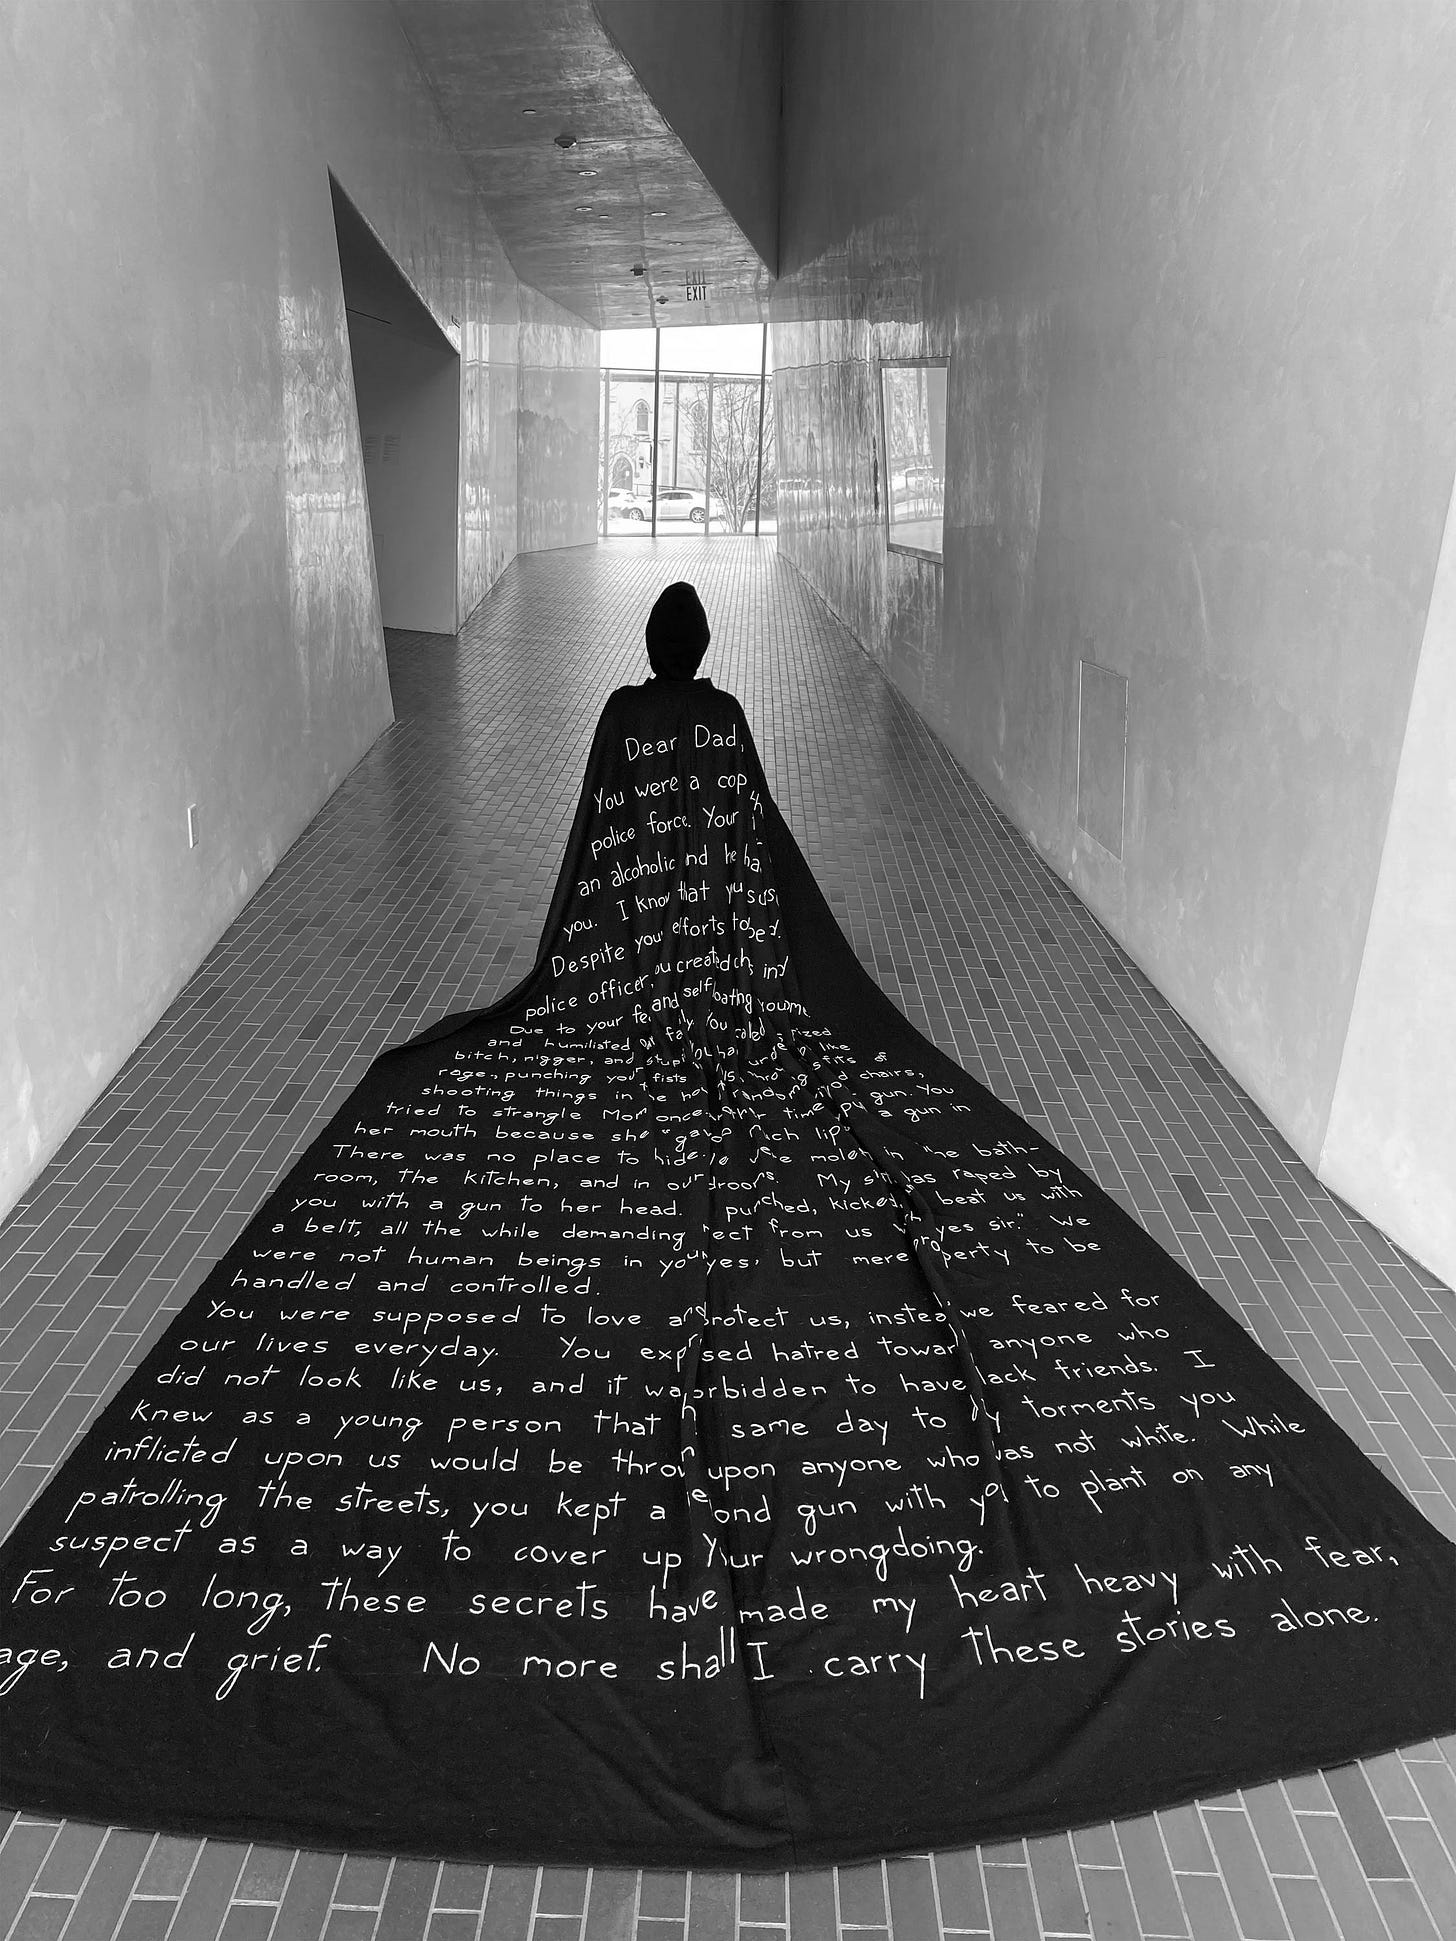 EXIT
Dear Dad,
You were a cop
police force. Your
an alcoholic nd he ha
you. I know that
Despite your efforts to be
police officer, ou created ch
Due to your fe and self loathing you me
and humiliated our fa ly. You called
bitch, nigger, and stup like
rage, punching your fists fits of
shooting things in he chairs,
tried to strangle Mom once gun. You
her mouth because she "gave lip" a gun in
There was no place to hide. mole in the bath-
room, the kitchen, and in our drooms. My sis as raped by
you with a gun to her head. punched, kicked, beat us with
a belt, all the while demanding ect from us "yes sir." We
were not human beings in your yes, but mere property to be
handled and controlled.
You were supposed to love and protect us, instead we feared for
our lives everyday. You expressed hatred toward anyone who
did not look like us, and it was forbidden to have lack friends. I
knew as a young person that same day to torments you
inflicted upon us would be thrown upon anyone who was not white. While
patrolling the streets, you kept a second gun with you to plant on any
suspect as a way to cover up your wrongdoing.
For too long, these secrets have made my heart heavy with fear,
age, and grief. No more shall I carry these stories alone.